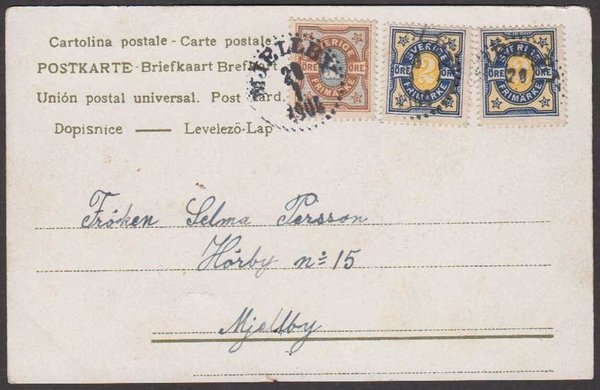 Cartolina postale - Carte postale
POSTKARTE - Briefkaart Bref
Unión postal universal. Post card.
Dopisnice — Levelező-Lap
SVERIGE
ÖRE ÖRE
SVERIGE
ÖRE 2 ÖRE
FRIMÄRKE
SVERIGE
ÖRE ÖRE
FRIMÄRKE
MJELLBY
20
1
20
Fröken Selma Persson
Hörby nº 15
Mjellby